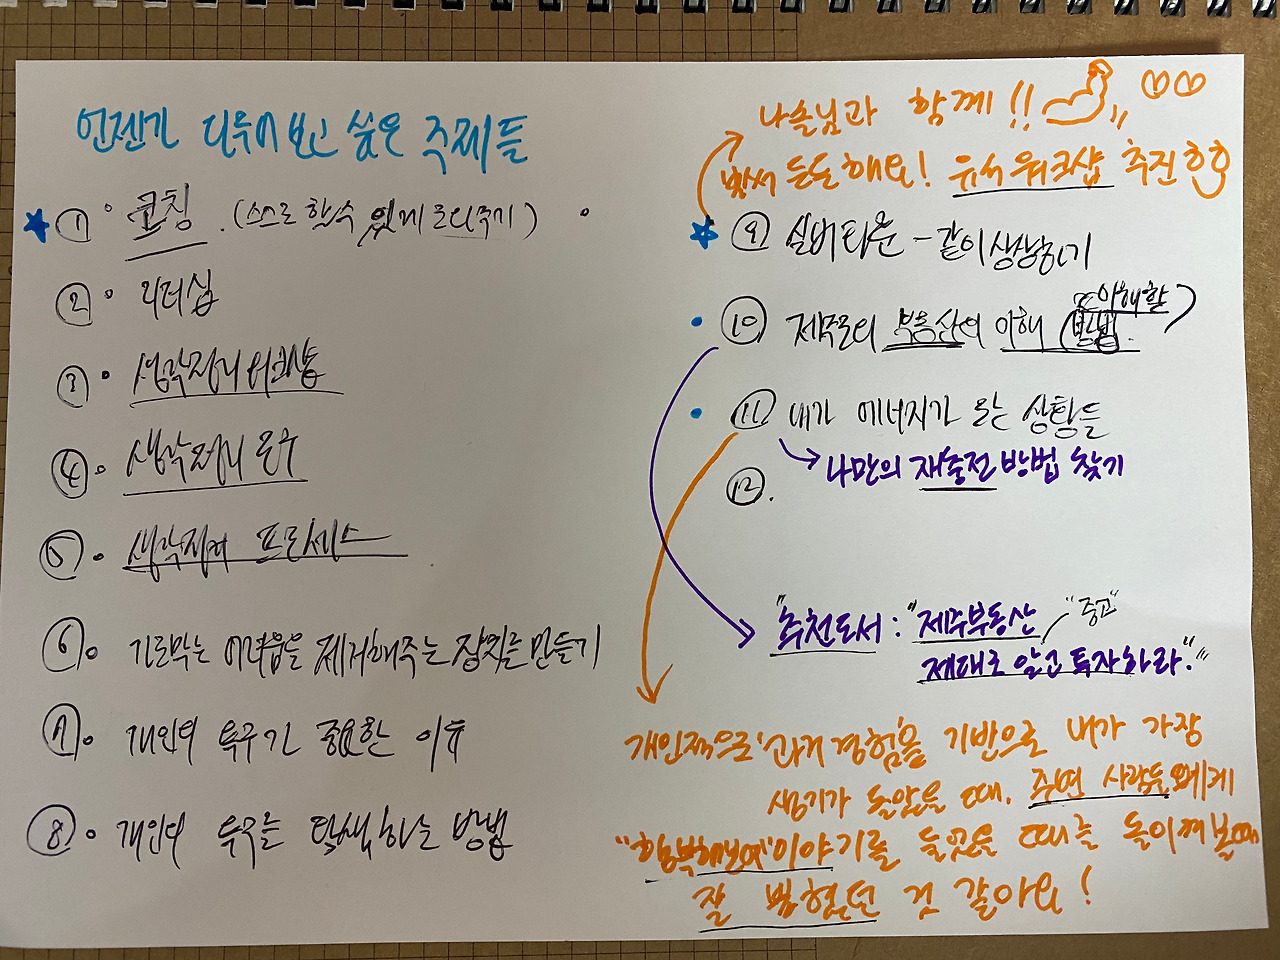 언젠가 다루어보고 싶은 주제들
① 코칭 (스스로 할 수 있게 도와주기)
② 리더십
③ 생각정리 워크샵
④ 생각정리 도구
⑤ 생각정리 프로세스
⑥ 가로막는 어려움을 제거해주는 장치를 만들기
⑦ 개인의 욕구가 중요한 이유
⑧ 개인의 욕구를 탐색하는 방법
나솔님과 함께!!
벌써 든든해요! 유석워크샵 추진
⑨ 실버타운 - 같이 상상하기
⑩ 제주도의 부동산의 이해 방법
이해할
⑪ 내가 에너지가 오는 상황들
나만의 재충전 방법 찾기
⑫
"추천도서: "제주부동산 "중고"
제대로 알고 투자하라."
개인적으로 과거 경험을 기반으로 내가 가장
생기가 돌았을 때. 주변 사람들에게
"행복해보여" 이야기를 들었을 때를 돌이켜볼때
잘 했던 것 같아요!